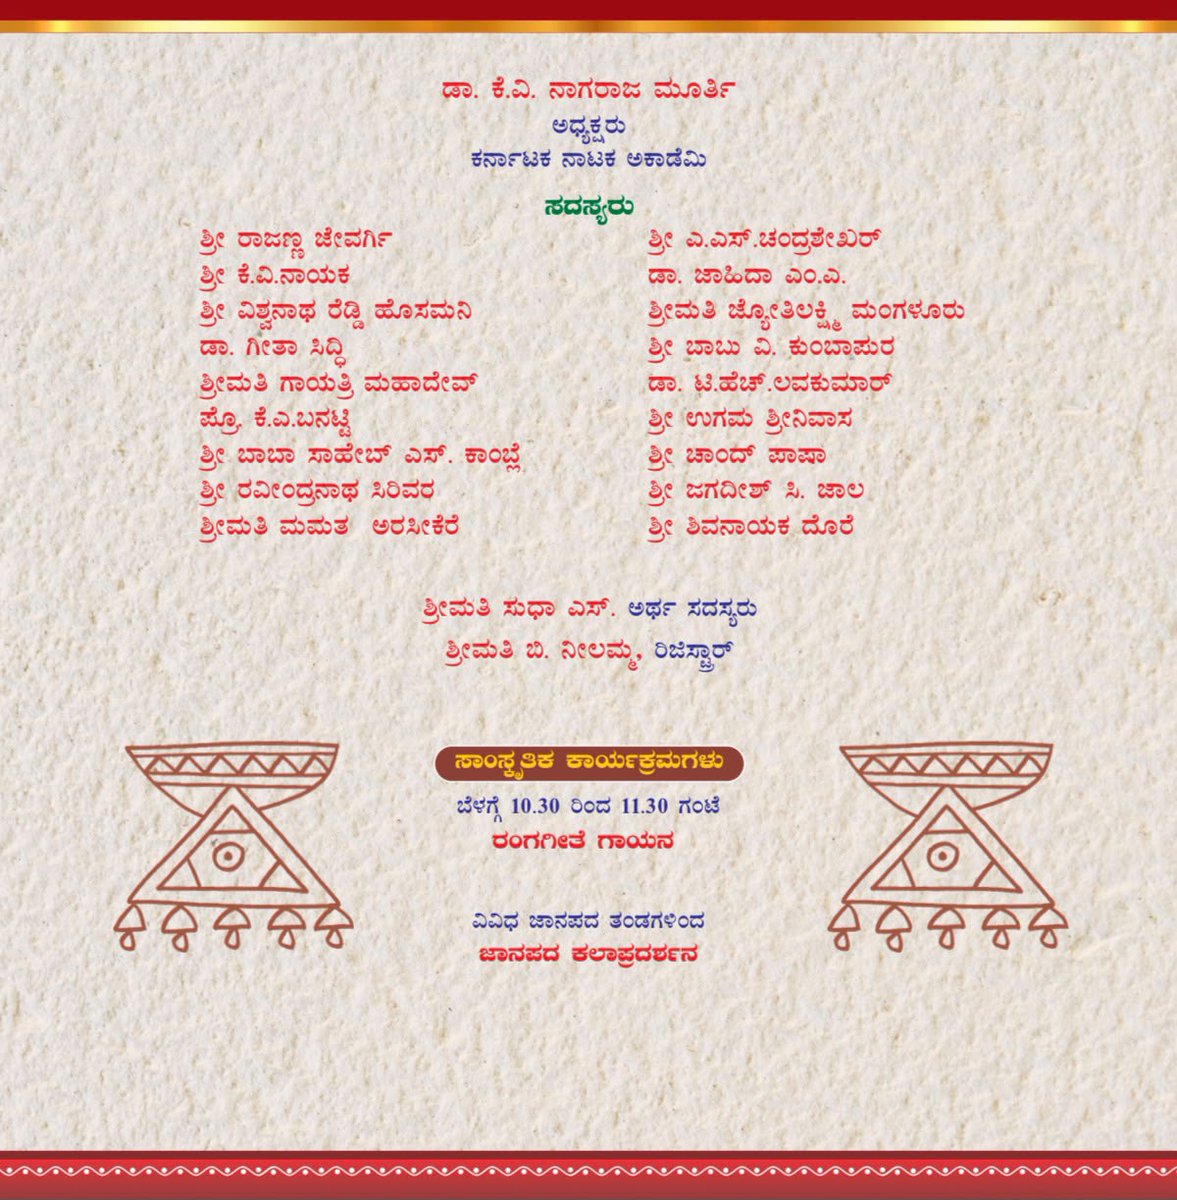 ಡಾ. ಕೆ.ವಿ. ನಾಗರಾಜ ಮೂರ್ತಿ
ಅಧ್ಯಕ್ಷರು
ಕರ್ನಾಟಕ ನಾಟಕ ಅಕಾಡೆಮಿ
ಸದಸ್ಯರು
ಶ್ರೀ ರಾಜಣ್ಣ ಜೇವರ್ಗಿ
ಶ್ರೀ ಕೆ.ವಿ.ನಾಯಕ
ಶ್ರೀ ವಿಶ್ವನಾಥ ರೆಡ್ಡಿ ಹೊಸಮನಿ
ಡಾ. ಗೀತಾ ಸಿದ್ಧಿ
ಶ್ರೀಮತಿ ಗಾಯತ್ರಿ ಮಹಾದೇವ್
ಪ್ರೊ. ಕೆ.ಎ.ಬನಟ್ಟಿ
ಶ್ರೀ ಬಾಬಾ ಸಾಹೇಬ್ ಎಸ್. ಕಾಂಬ್ಲೆ
ಶ್ರೀ ರವೀಂದ್ರನಾಥ ಸಿರಿವರ
ಶ್ರೀಮತಿ ಮಮತ ಅರಸೀಕೆರೆ
ಶ್ರೀ ಎ.ಎಸ್.ಚಂದ್ರಶೇಖರ್
ಡಾ. ಜಾಹಿದಾ ಎಂ.ಎ.
ಶ್ರೀಮತಿ ಜ್ಯೋತಿಲಕ್ಷ್ಮಿ ಮಂಗಳೂರು
ಶ್ರೀ ಬಾಬು ವಿ. ಕುಂಬಾಪುರ
ಡಾ. ಟಿ.ಹೆಚ್.ಲವಕುಮಾರ್
ಶ್ರೀ ಉಗಮ ಶ್ರೀನಿವಾಸ
ಶ್ರೀ ಚಾಂದ್ ಪಾಷಾ
ಶ್ರೀ ಜಗದೀಶ್ ಸಿ. ಜಾಲ
ಶ್ರೀ ಶಿವನಾಯಕ ದೊರೆ
ಶ್ರೀಮತಿ ಸುಧಾ ಎಸ್. ಅರ್ಥ ಸದಸ್ಯರು
ಶ್ರೀಮತಿ ಬಿ. ನೀಲಮ್ಮ, ರಿಜಿಸ್ಟ್ರಾರ್
ಸಾಂಸ್ಕೃತಿಕ ಕಾರ್ಯಕ್ರಮಗಳು
ಬೆಳಗ್ಗೆ 10.30 ರಿಂದ 11.30 ಗಂಟೆ
ರಂಗಗೀತೆ ಗಾಯನ
ವಿವಿಧ ಜಾನಪದ ತಂಡಗಳಿಂದ
ಜಾನಪದ ಕಲಾಪ್ರದರ್ಶನ